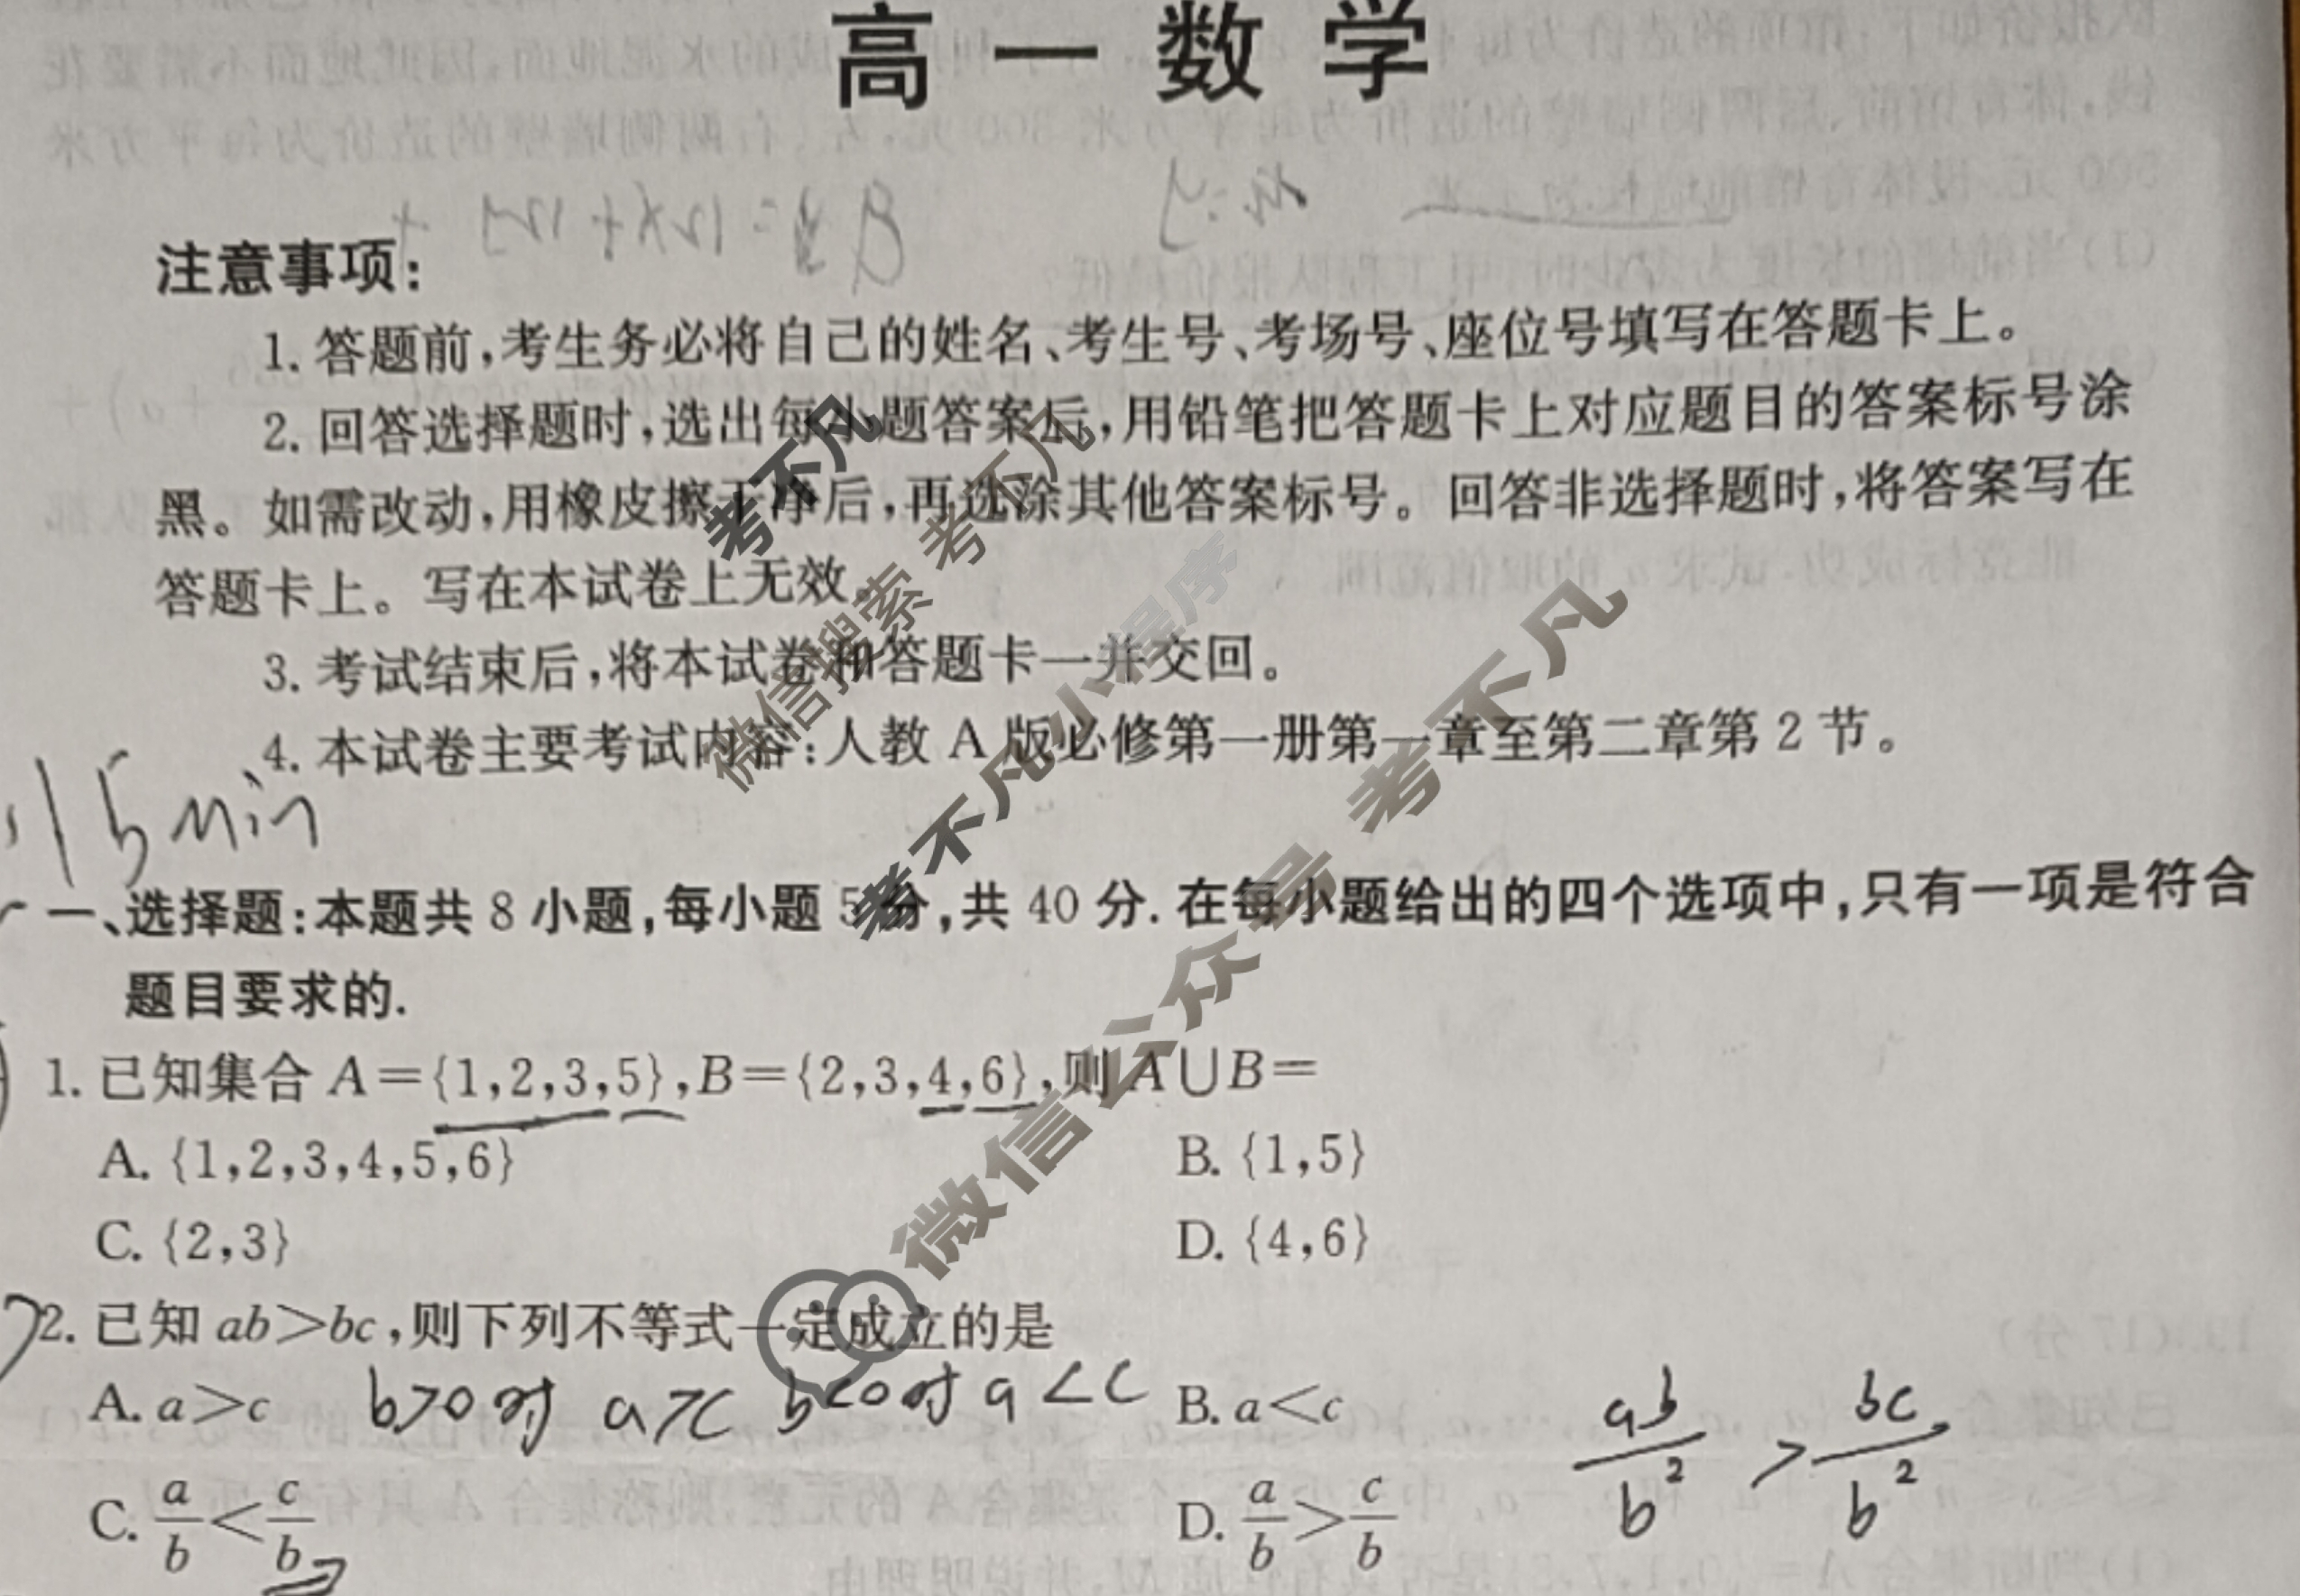 高一数学
注意事项:
1. 答题前,考生务必将自己的姓名、考生号、考场号、座位号填写在答题卡上。
2. 回答选择题时,选出每小题答案后,用铅笔把答题卡上对应题目的答案标号涂
黑。如需改动,用橡皮擦干净后,再选涂其他答案标号。回答非选择题时,将答案写在
答题卡上。写在本试卷上无效。
3. 考试结束后,将本试卷和答题卡一并交回。
4. 本试卷主要考试内容:人教 A 版必修第一册第一章至第二章第 2 节。
15min
一、选择题:本题共 8 小题,每小题 5 分,共 40 分. 在每小题给出的四个选项中,只有一项是符合
题目要求的.
1. 已知集合 A={1,2,3,5},B={2,3,4,6},则 A∪B=
A. {1,2,3,4,5,6} B. {1,5}
C. {2,3} D. {4,6}
2. 已知 ab>bc,则下列不等式一定成立的是
A. a>c b>0时 a>c b<0时 a<c B. a<c
C. a/b<c/b D. a/b>c/b ab/b²>bc/b²
考不凡
微信搜索 考不凡
考不凡小程序
微信公众号 考不凡